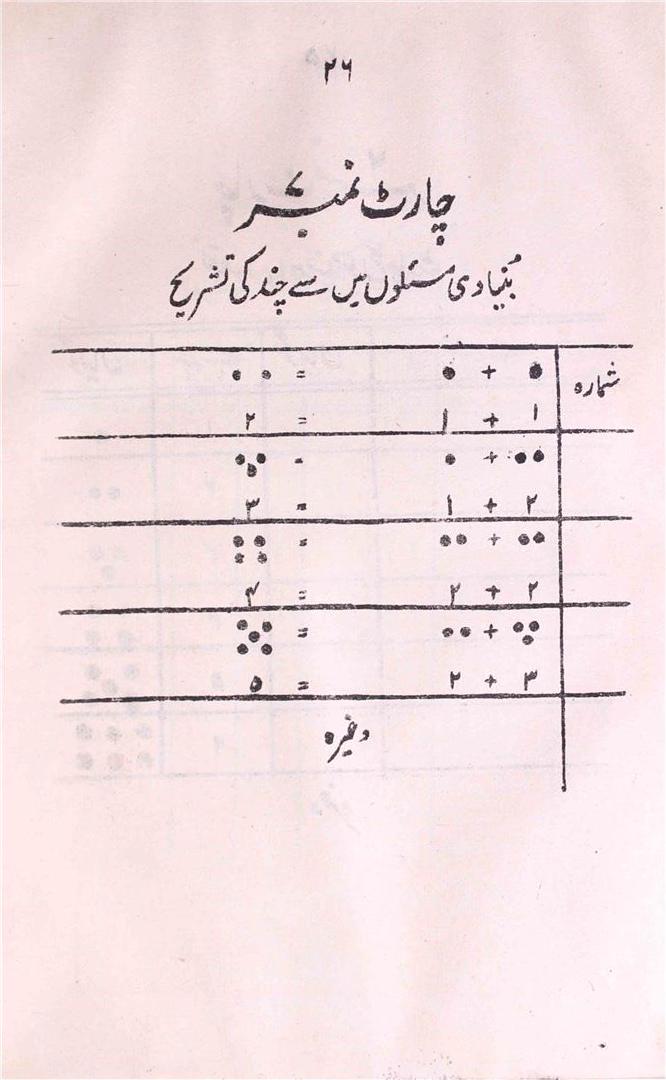 ۲۶
چارٹ نمبر ۷
بنیادی مسئلوں میں سے چند کی تشریح
شمارہ
● + ● = ● ●
۱ + ۱ = ۲
●● + ● = ●●●
۲ + ۱ = ۳
●● + ●● = ●●●●
۲ + ۲ = ۴
●●● + ●● = ●●●●●
۳ + ۲ = ۵
وغیرہ